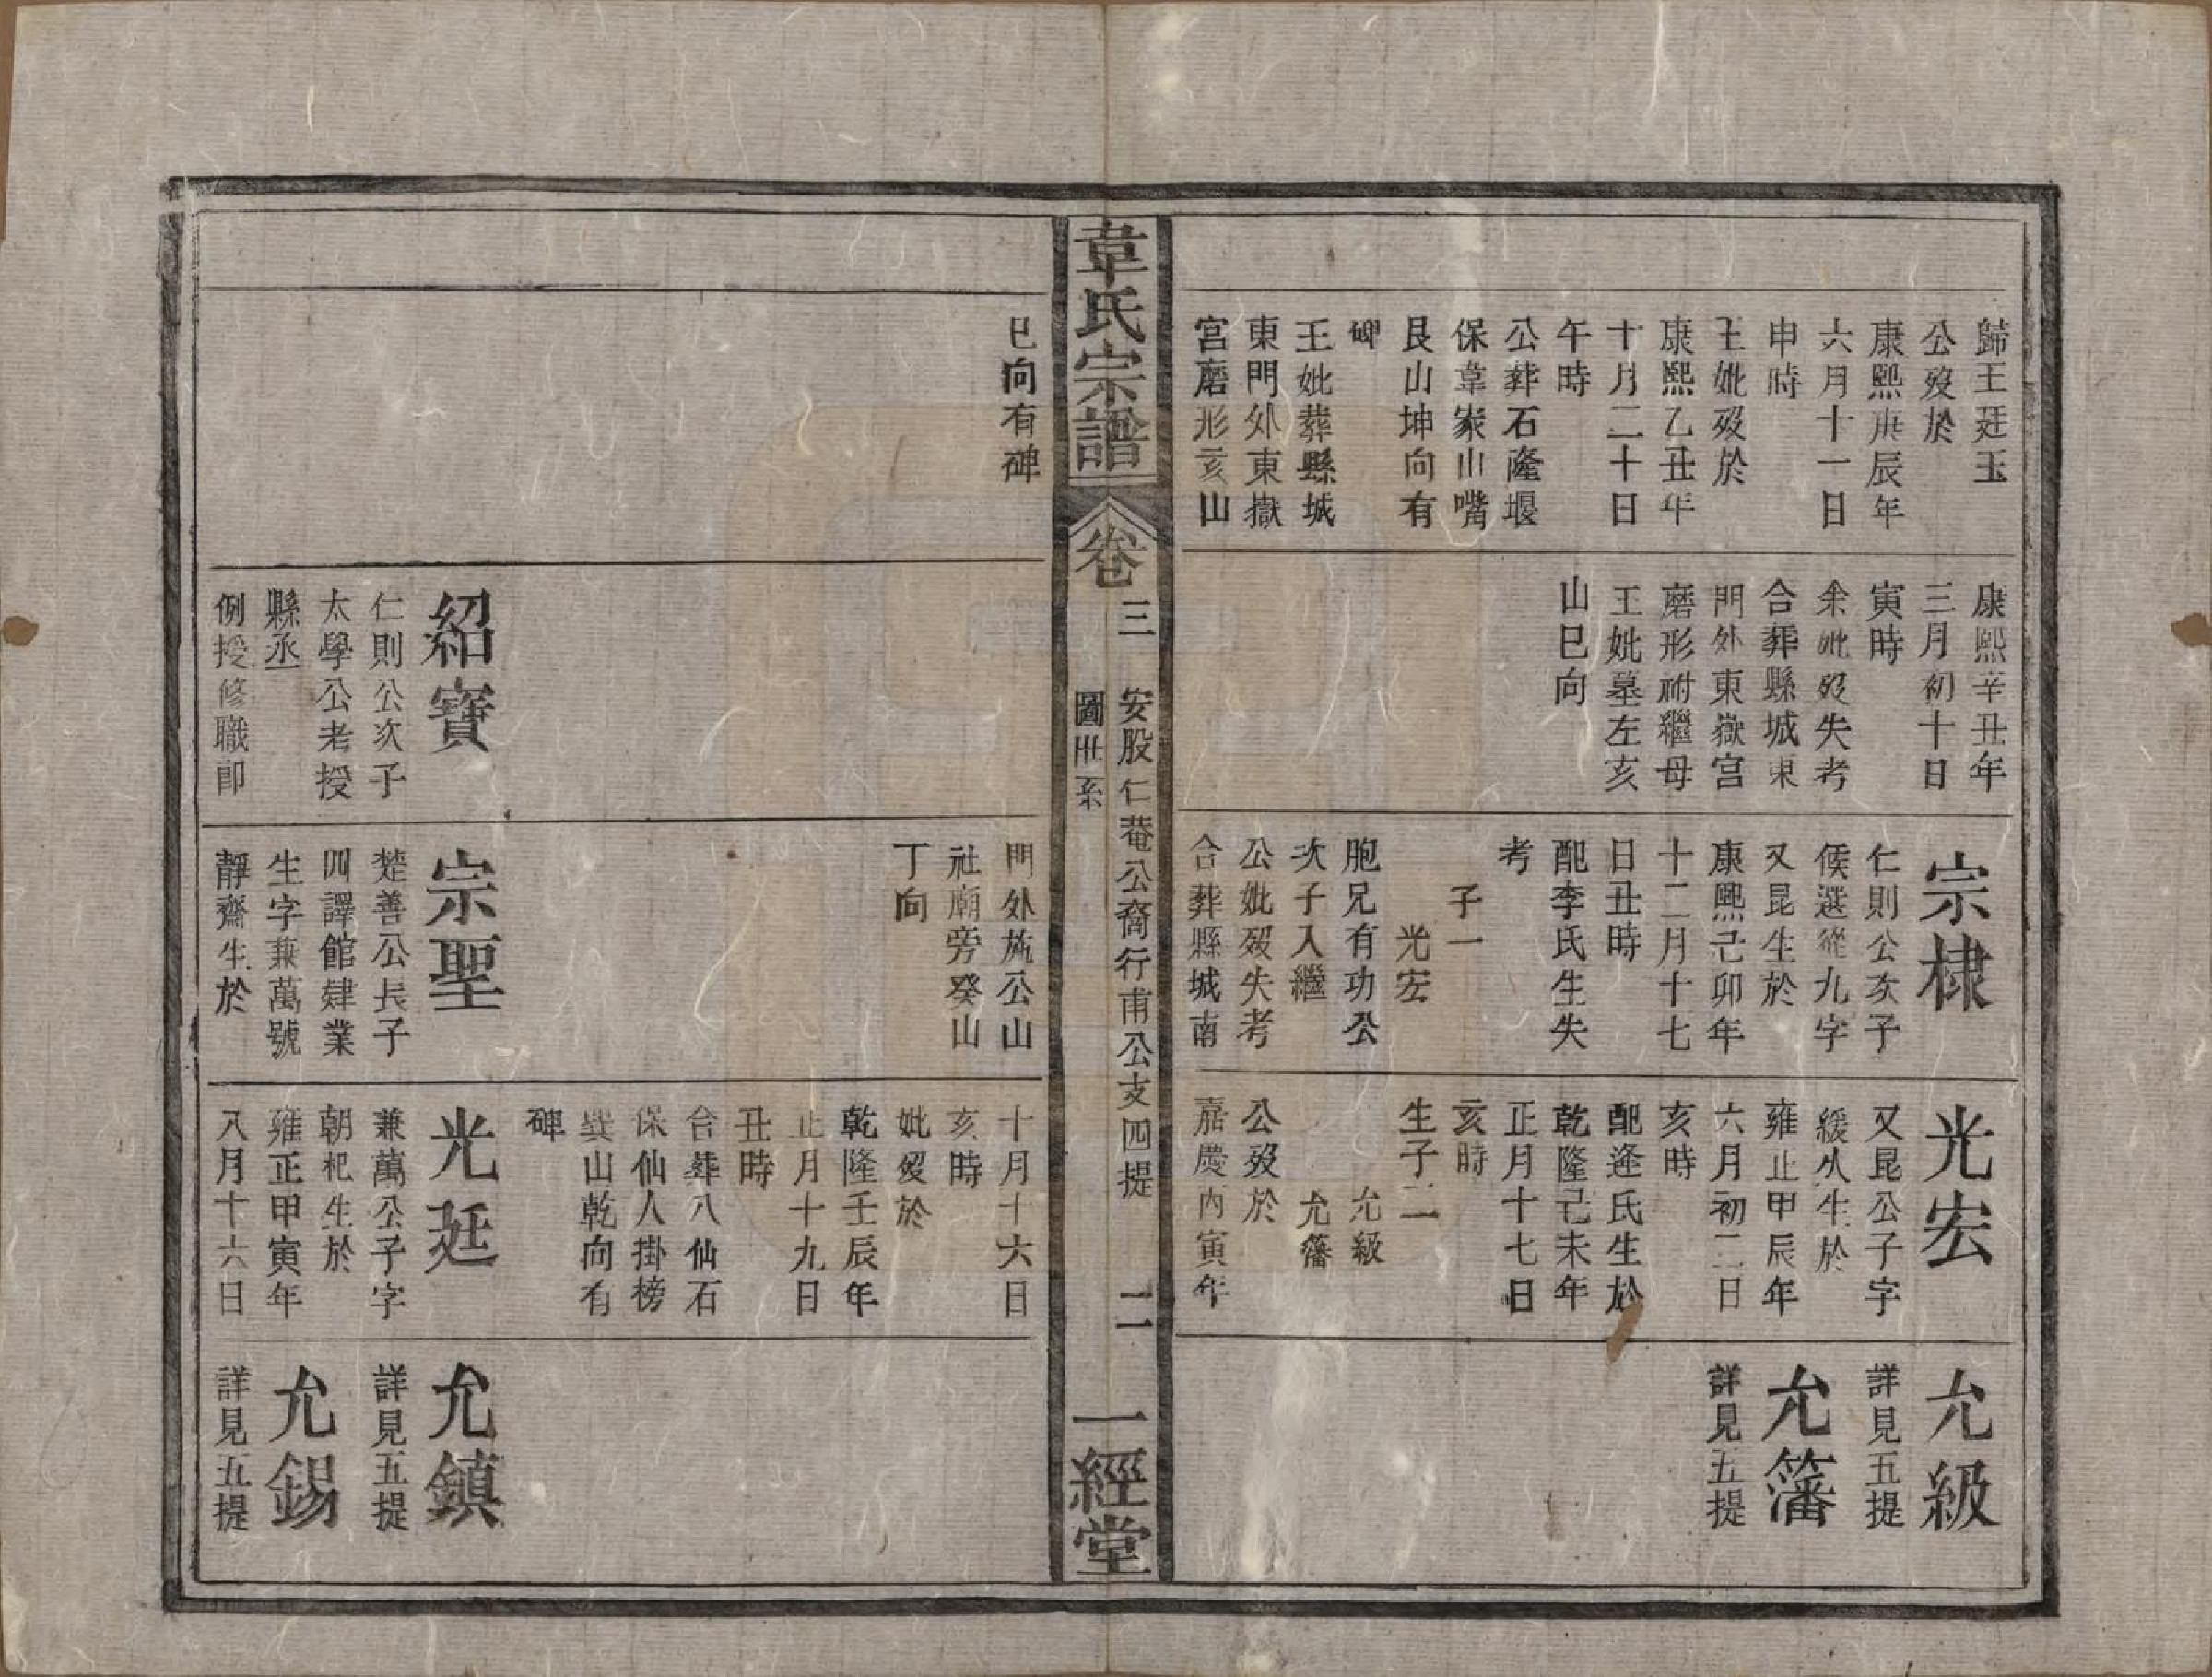 歸王廷玉
公歿於
康熙庚辰年
六月十一日
申時
王妣歿於
康熙乙丑年
十月二十日
午時
公葬石隆堰
保韋家山嘴
艮山坤向有
碑
王妣葬縣城
東門外東嶽
宮磨形亥山
康熙辛丑年
三月初十日
寅時
余妣歿失考
合葬縣城東
門外東嶽宮
磨形祔繼母
王妣墓左亥
山巳向
宗棣
仁則公次子
候選從九字
又昆生於
康熙己卯年
十二月十七
日丑時
配李氏生失
考
子一
光宏
胞兄有功公
次子入繼
公妣歿失考
合葬縣城南
光宏
又昆公子字
緩久生於
雍正甲辰年
六月初二日
亥時
配逄氏生於
乾隆己未年
正月十七日
亥時
生子二
允級
允籓
公歿於
嘉慶內寅年
允級
詳見五提
允籓
詳見五提
韋氏宗譜
卷三
安股仁菴公裔行甫公支四提
圖卅系
二
一經堂
巳向有碑
紹寶
仁則公次子
太學公考授
縣丞
例授修職郎
門外施公山
社廟旁癸山
丁向
宗聖
楚善公長子
四譯館肄業
生字兼萬號
靜齋生於
十月十六日
亥時
妣歿於
乾隆壬辰年
正月十九日
丑時
合葬八仙石
保仙人掛榜
巽山乾向有
碑
光廷
兼萬公子字
朝杞生於
雍正甲寅年
八月十六日
允鎮
詳見五提
允錫
詳見五提